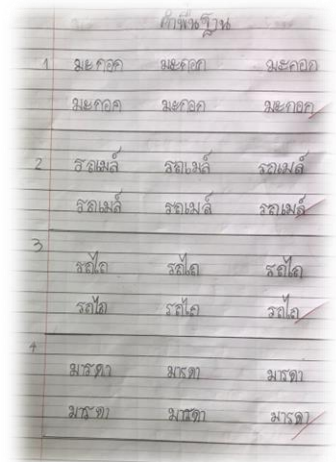 คำพื้นฐาน
1 มะกอก มะกอก มะกอก
มะกอก มะกอก มะกอก
2 รถเมล์ รถเมล์ รถเมล์
รถเมล์ รถเมล์ รถเมล์
3 รถไถ รถไถ รถไถ
รถไถ รถไถ รถไถ
4 มารดา มารดา มารดา
มารดา มารดา มารดา